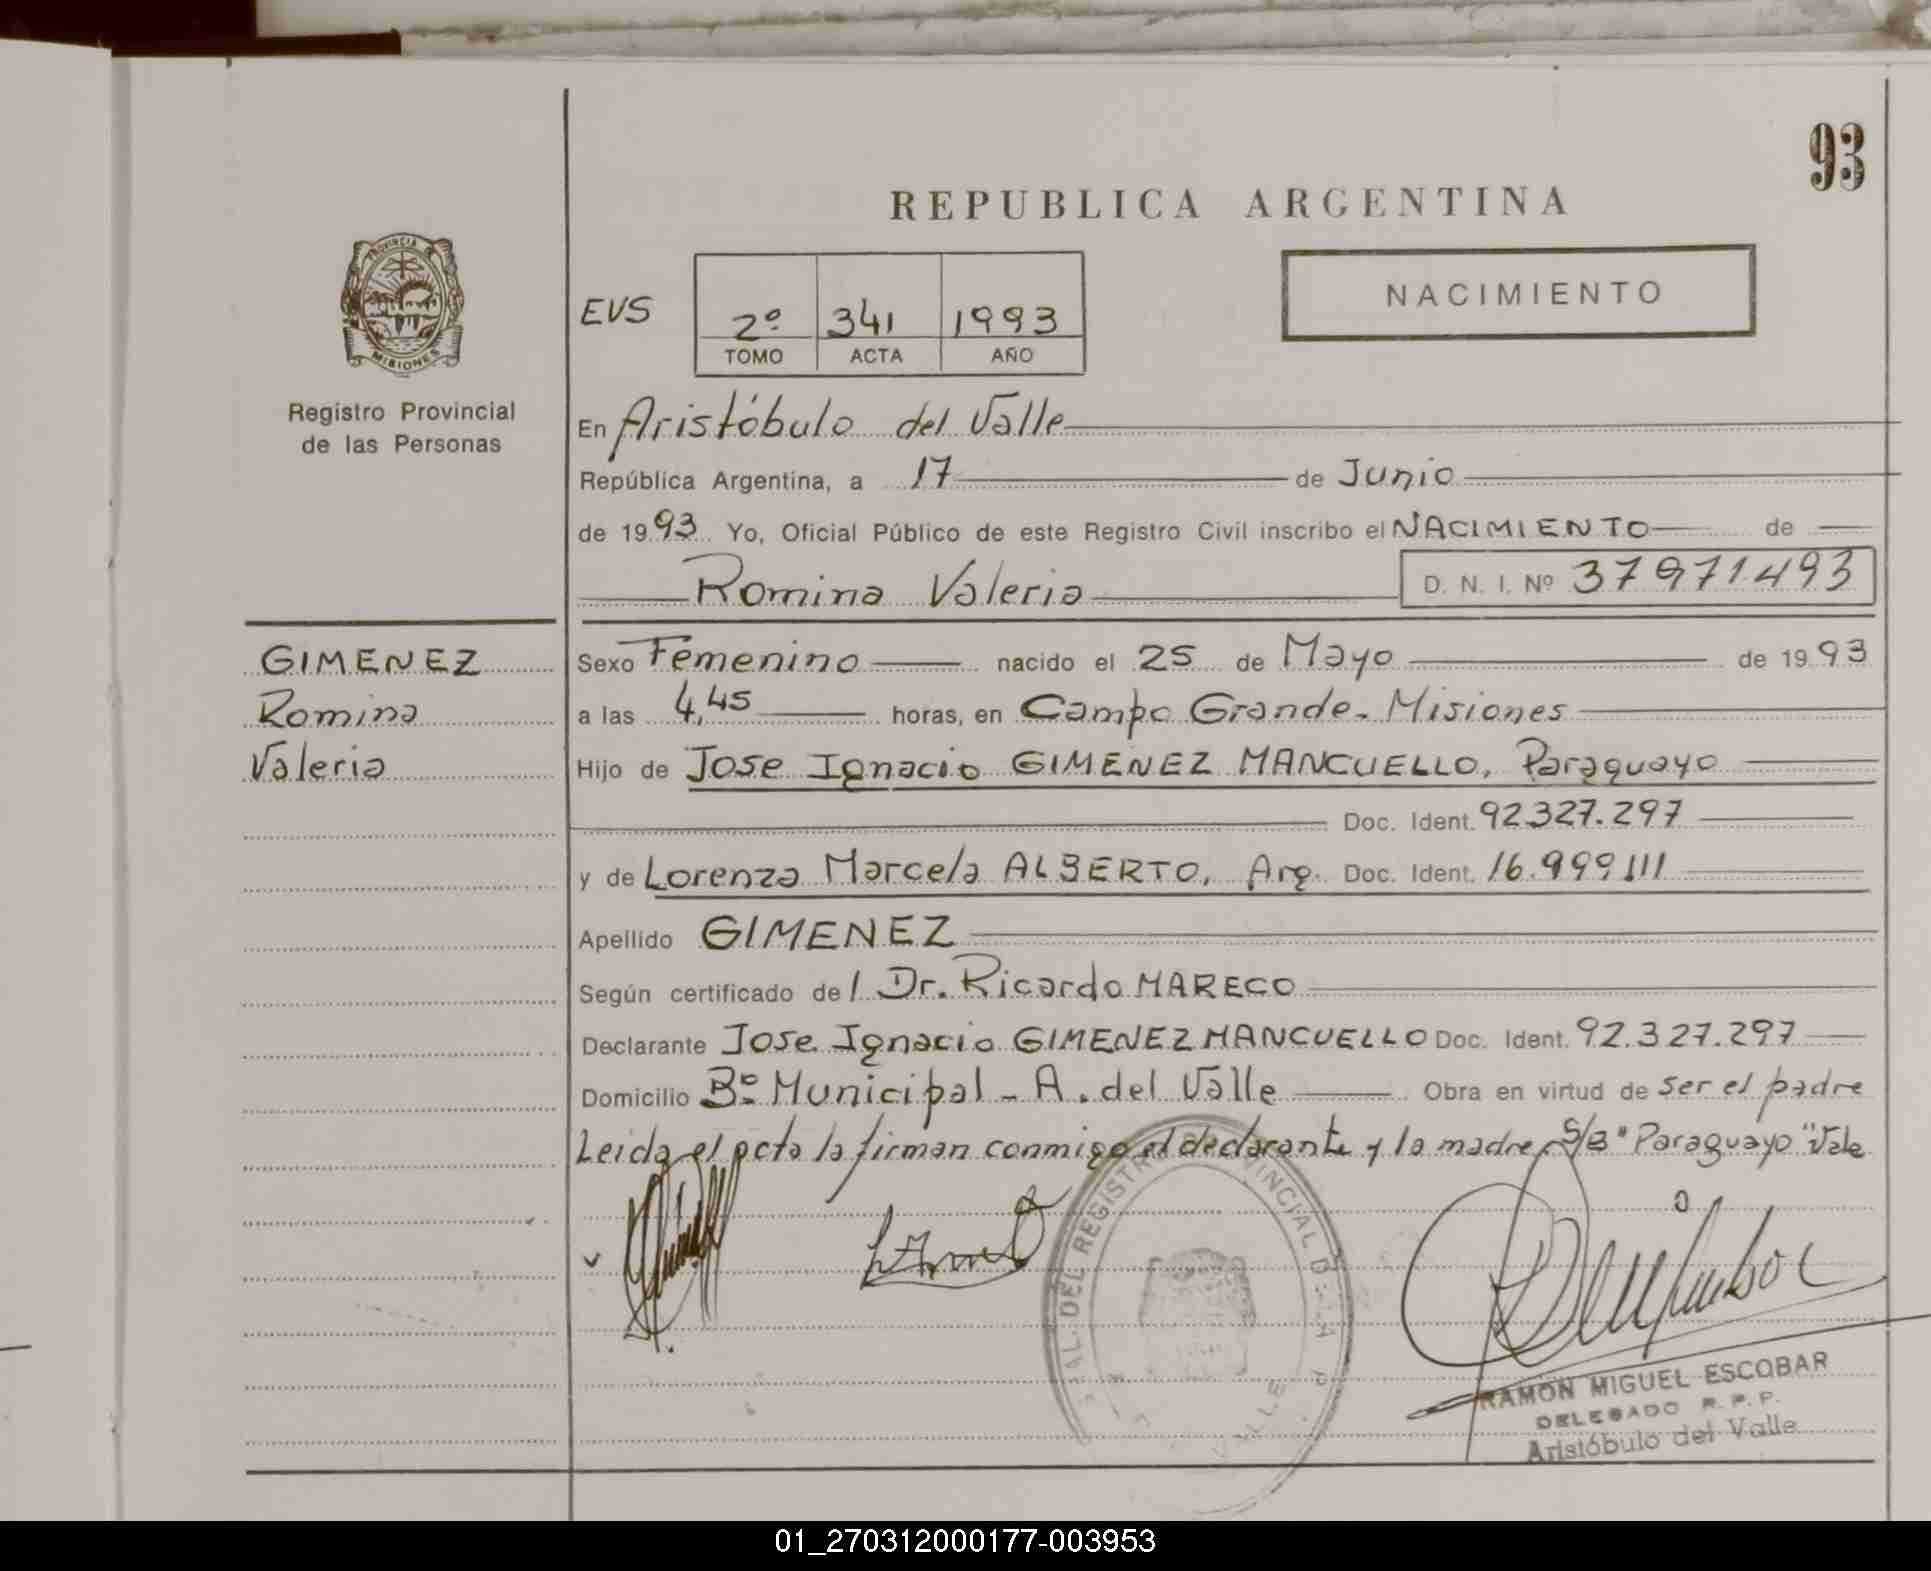 93
REPUBLICA ARGENTINA
PROVINCIA DE
MISIONES
Registro Provincial
de las Personas
EVS
2º 341 1993
TOMO ACTA AÑO
NACIMIENTO
En Aristóbulo del Valle
República Argentina, a 17 de Junio
de 1993 Yo, Oficial Público de este Registro Civil inscribo el NACIMIENTO de
Romina Valeria D. N. I. Nº 37971493
GIMENEZ
Romina
Valeria
Sexo Femenino nacido el 25 de Mayo de 1993
a las 4,45 horas, en Campo Grande - Misiones
Hijo de Jose Ignacio GIMENEZ MANCUELLO, Paraguayo
Doc. Ident. 92327.297
y de Lorenza Marcela ALBERTO, Arg. Doc. Ident. 16.999111
Apellido GIMENEZ
Según certificado del Dr. Ricardo MARECO
Declarante Jose Ignacio GIMENEZ MANCUELLO Doc. Ident. 92.327.297
Domicilio Bº Municipal - A. del Valle Obra en virtud de ser el padre
Leida el acta la firman conmigo el declarante y la madre, S/B "Paraguayo" Vale
RAMON MIGUEL ESCOBAR
DELEGADO R. P. P.
Aristóbulo del Valle
01_270312000177-003953